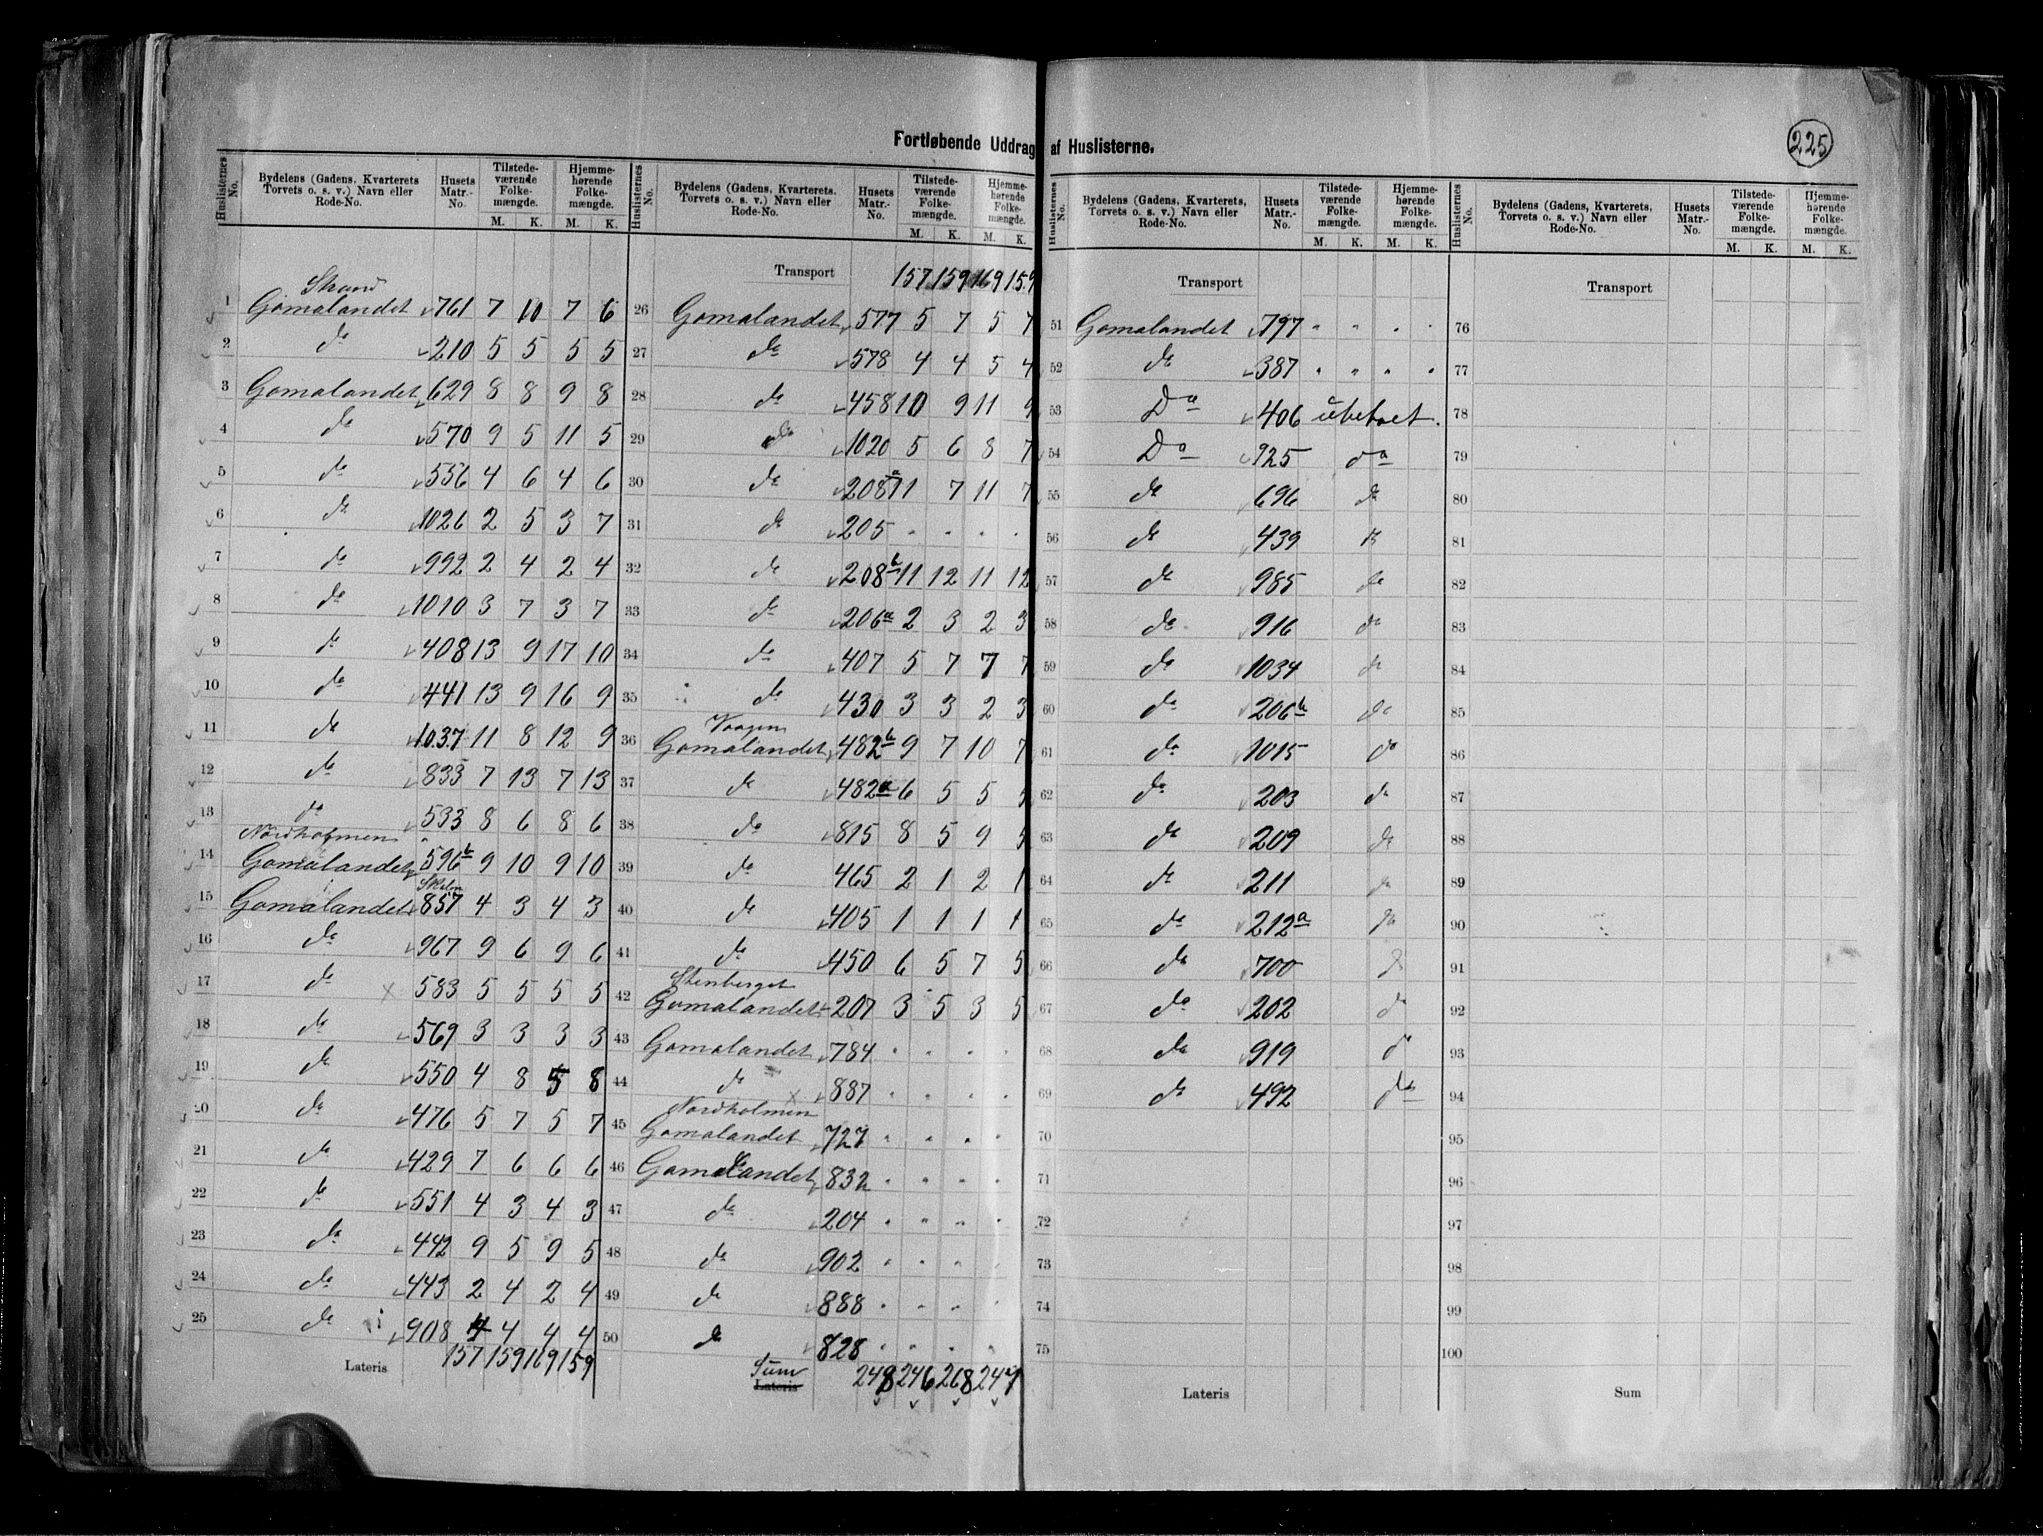 Fortløbende Uddrag af Huslisterne.
225
Huslisternes No. Bydelens (Gadens, Kvarterets Torvets o. s. v.) Navn eller Rode-No. Husets Matr.-No. Tilstede-værende Folke-mængde. M. K. Hjemme-hørende Folke-mængde. M. K.
Strand
1 Gomalandet 761 7 10 7 6
2 do 210 5 5 5 5
3 Gomalandet 629 8 8 9 8
4 do 570 9 5 11 5
5 do 556 4 6 4 6
6 do 1026 2 5 3 7
7 do 992 2 4 2 4
8 do 1010 3 7 3 7
9 do 408 13 9 17 10
10 do 441 13 9 16 9
11 do 1037 11 8 12 9
12 do 833 7 13 7 13
13 do 533 8 6 8 6
Nordholmen
14 Gomalandet 596b 9 10 9 10
15 Gomalandet 857 4 3 4 3
16 do 967 9 6 9 6
17 do 583 5 5 5 5
18 do 569 3 3 3 3
19 do 550 4 8 5 8
20 do 476 5 7 5 7
21 do 429 7 6 6 6
22 do 551 4 3 4 3
23 do 442 9 5 9 5
24 do 443 2 4 2 4
25 do 908 4 4 4 4
Lateris 157 159 169 159
Huslisternes No. Bydelens (Gadens, Kvarterets, Torvets o. s. v.) Navn eller Rode-No. Husets Matr.-No. Tilstede-værende Folke-mængde. M. K. Hjemme-hørende Folke-mængde. M. K.
Transport 157 159 169 159
26 Gomalandet 577 5 7 5 7
27 do 578 4 4 5 4
28 do 458 10 9 11 9
29 do 1020 5 6 8 7
30 do 208a 11 7 11 7
31 do 205 " " " "
32 do 208b 11 12 11 12
33 do 206a 2 3 2 3
34 do 407 5 7 7 7
35 do 430 3 3 2 3
Vaagen
36 Gomalandet 482b 9 7 10 7
37 do 482a 6 5 5 5
38 do 815 8 5 9 5
39 do 465 2 1 2 1
40 do 405 1 1 1 1
41 do 450 6 5 7 5
Stenberget
42 Gomalandet 207 3 5 3 5
43 Gomalandet 784 " " " "
44 do 887 " " " "
Nordholmen
45 Gomalandet 727 " " " "
46 Gomalandet 832 " " " "
47 do 204 " " " "
48 do 902 " " " "
49 do 888 " " " "
50 do 828 " " " "
Sum Lateris 248 246 268 247
Huslisternes No. Bydelens (Gadens, Kvarterets, Torvets o. s. v.) Navn eller Rode-No. Husets Matr.-No. Tilstede-værende Folke-mængde. M. K. Hjemme-hørende Folke-mængde. M. K.
Transport
51 Gomalandet 797 " " " "
52 do 387 " " " "
53 Do 406 ubeboet.
54 Do 925 do
55 do 696 do
56 do 439 do
57 do 985 do
58 do 916 do
59 do 1034 do
60 do 206b do
61 do 1015 do
62 do 203 do
63 do 209 do
64 do 211 do
65 do 212a do
66 do 700 do
67 do 202 do
68 do 919 do
69 do 492 do
70
71
72
73
74
75
Lateris
Huslisternes No. Bydelens (Gadens, Kvarterets, Torvets o. s. v.) Navn eller Rode-No. Husets Matr.-No. Tilstede-værende Folke-mængde. M. K. Hjemme-hørende Folke-mængde. M. K.
Transport
76
77
78
79
80
81
82
83
84
85
86
87
88
89
90
91
92
93
94
95
96
97
98
99
100
Sum